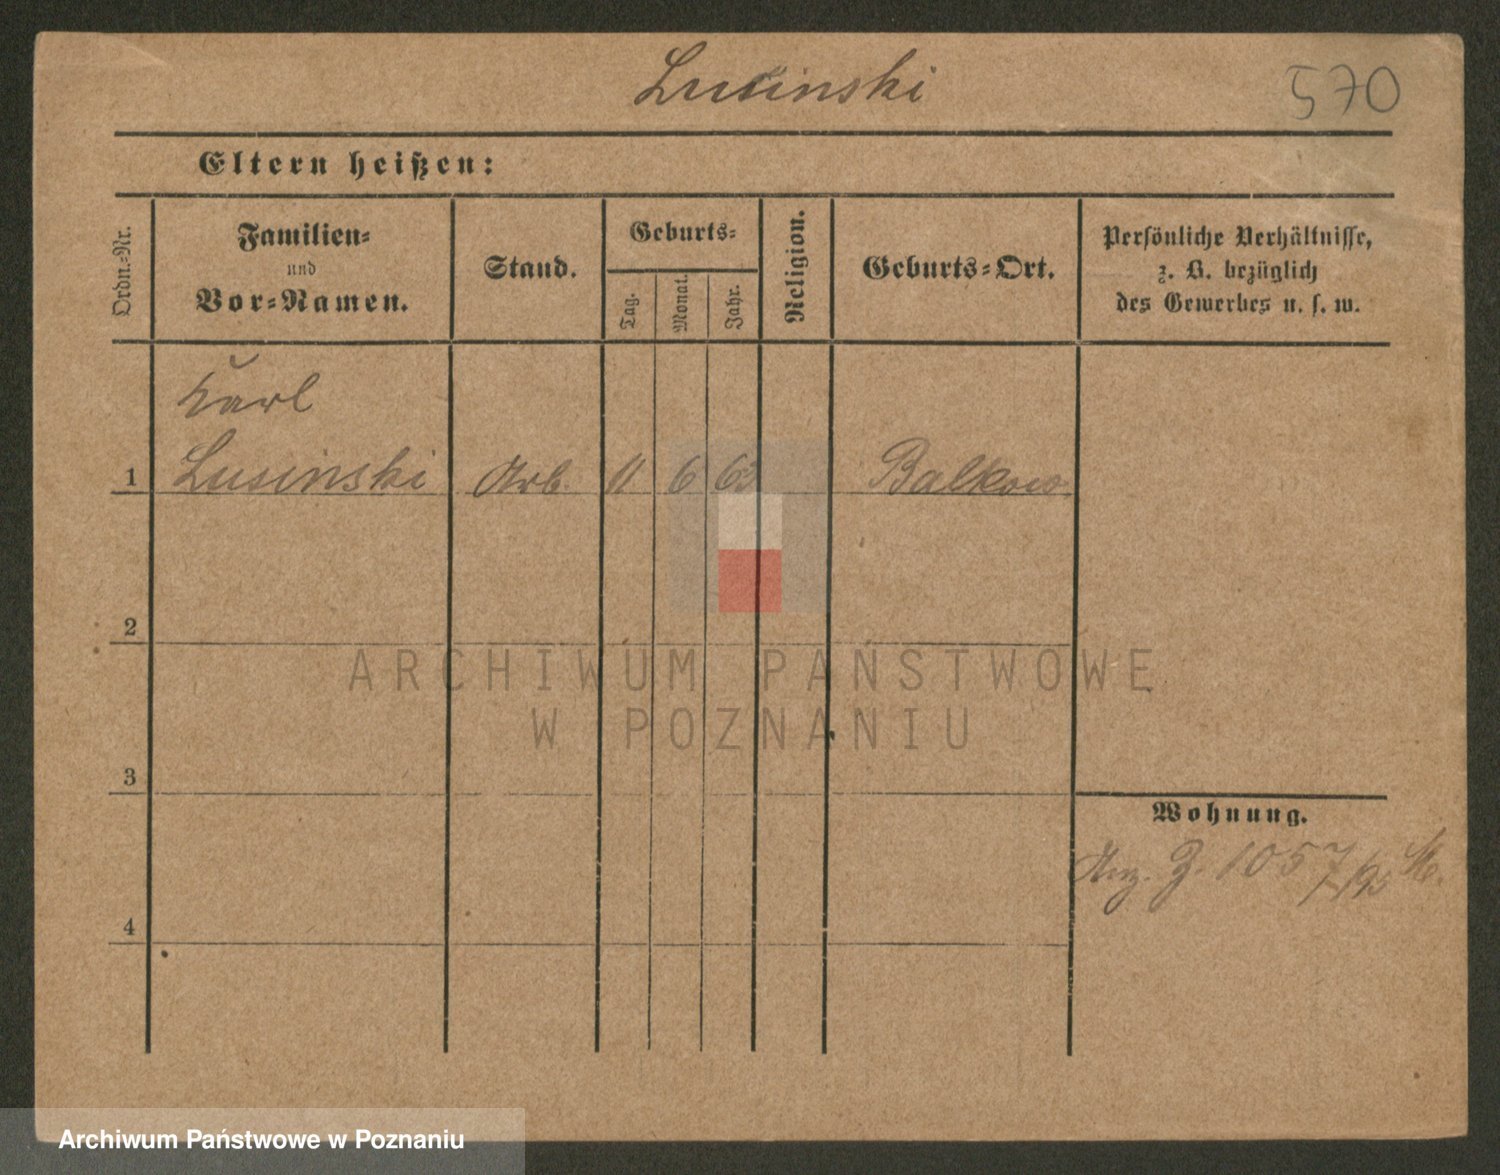 Lusinski
570
Eltern heißen:
Ordn.-Nr.
Familien-
und
Vor-Namen.
Stand.
Geburts-
Tag.
Monat.
Jahr.
Religion.
Geburts-Ort.
Persönliche Verhältnisse,
z. B. bezüglich
des Gewerbes u. s. w.
Karl
1 Lusinski Arb. 11 6 63 Balkow
2
3
4
Wohnung.
Anz. Z. 1057/95
ARCHIWUM PAŃSTWOWE
W POZNANIU
Archiwum Państwowe w Poznaniu